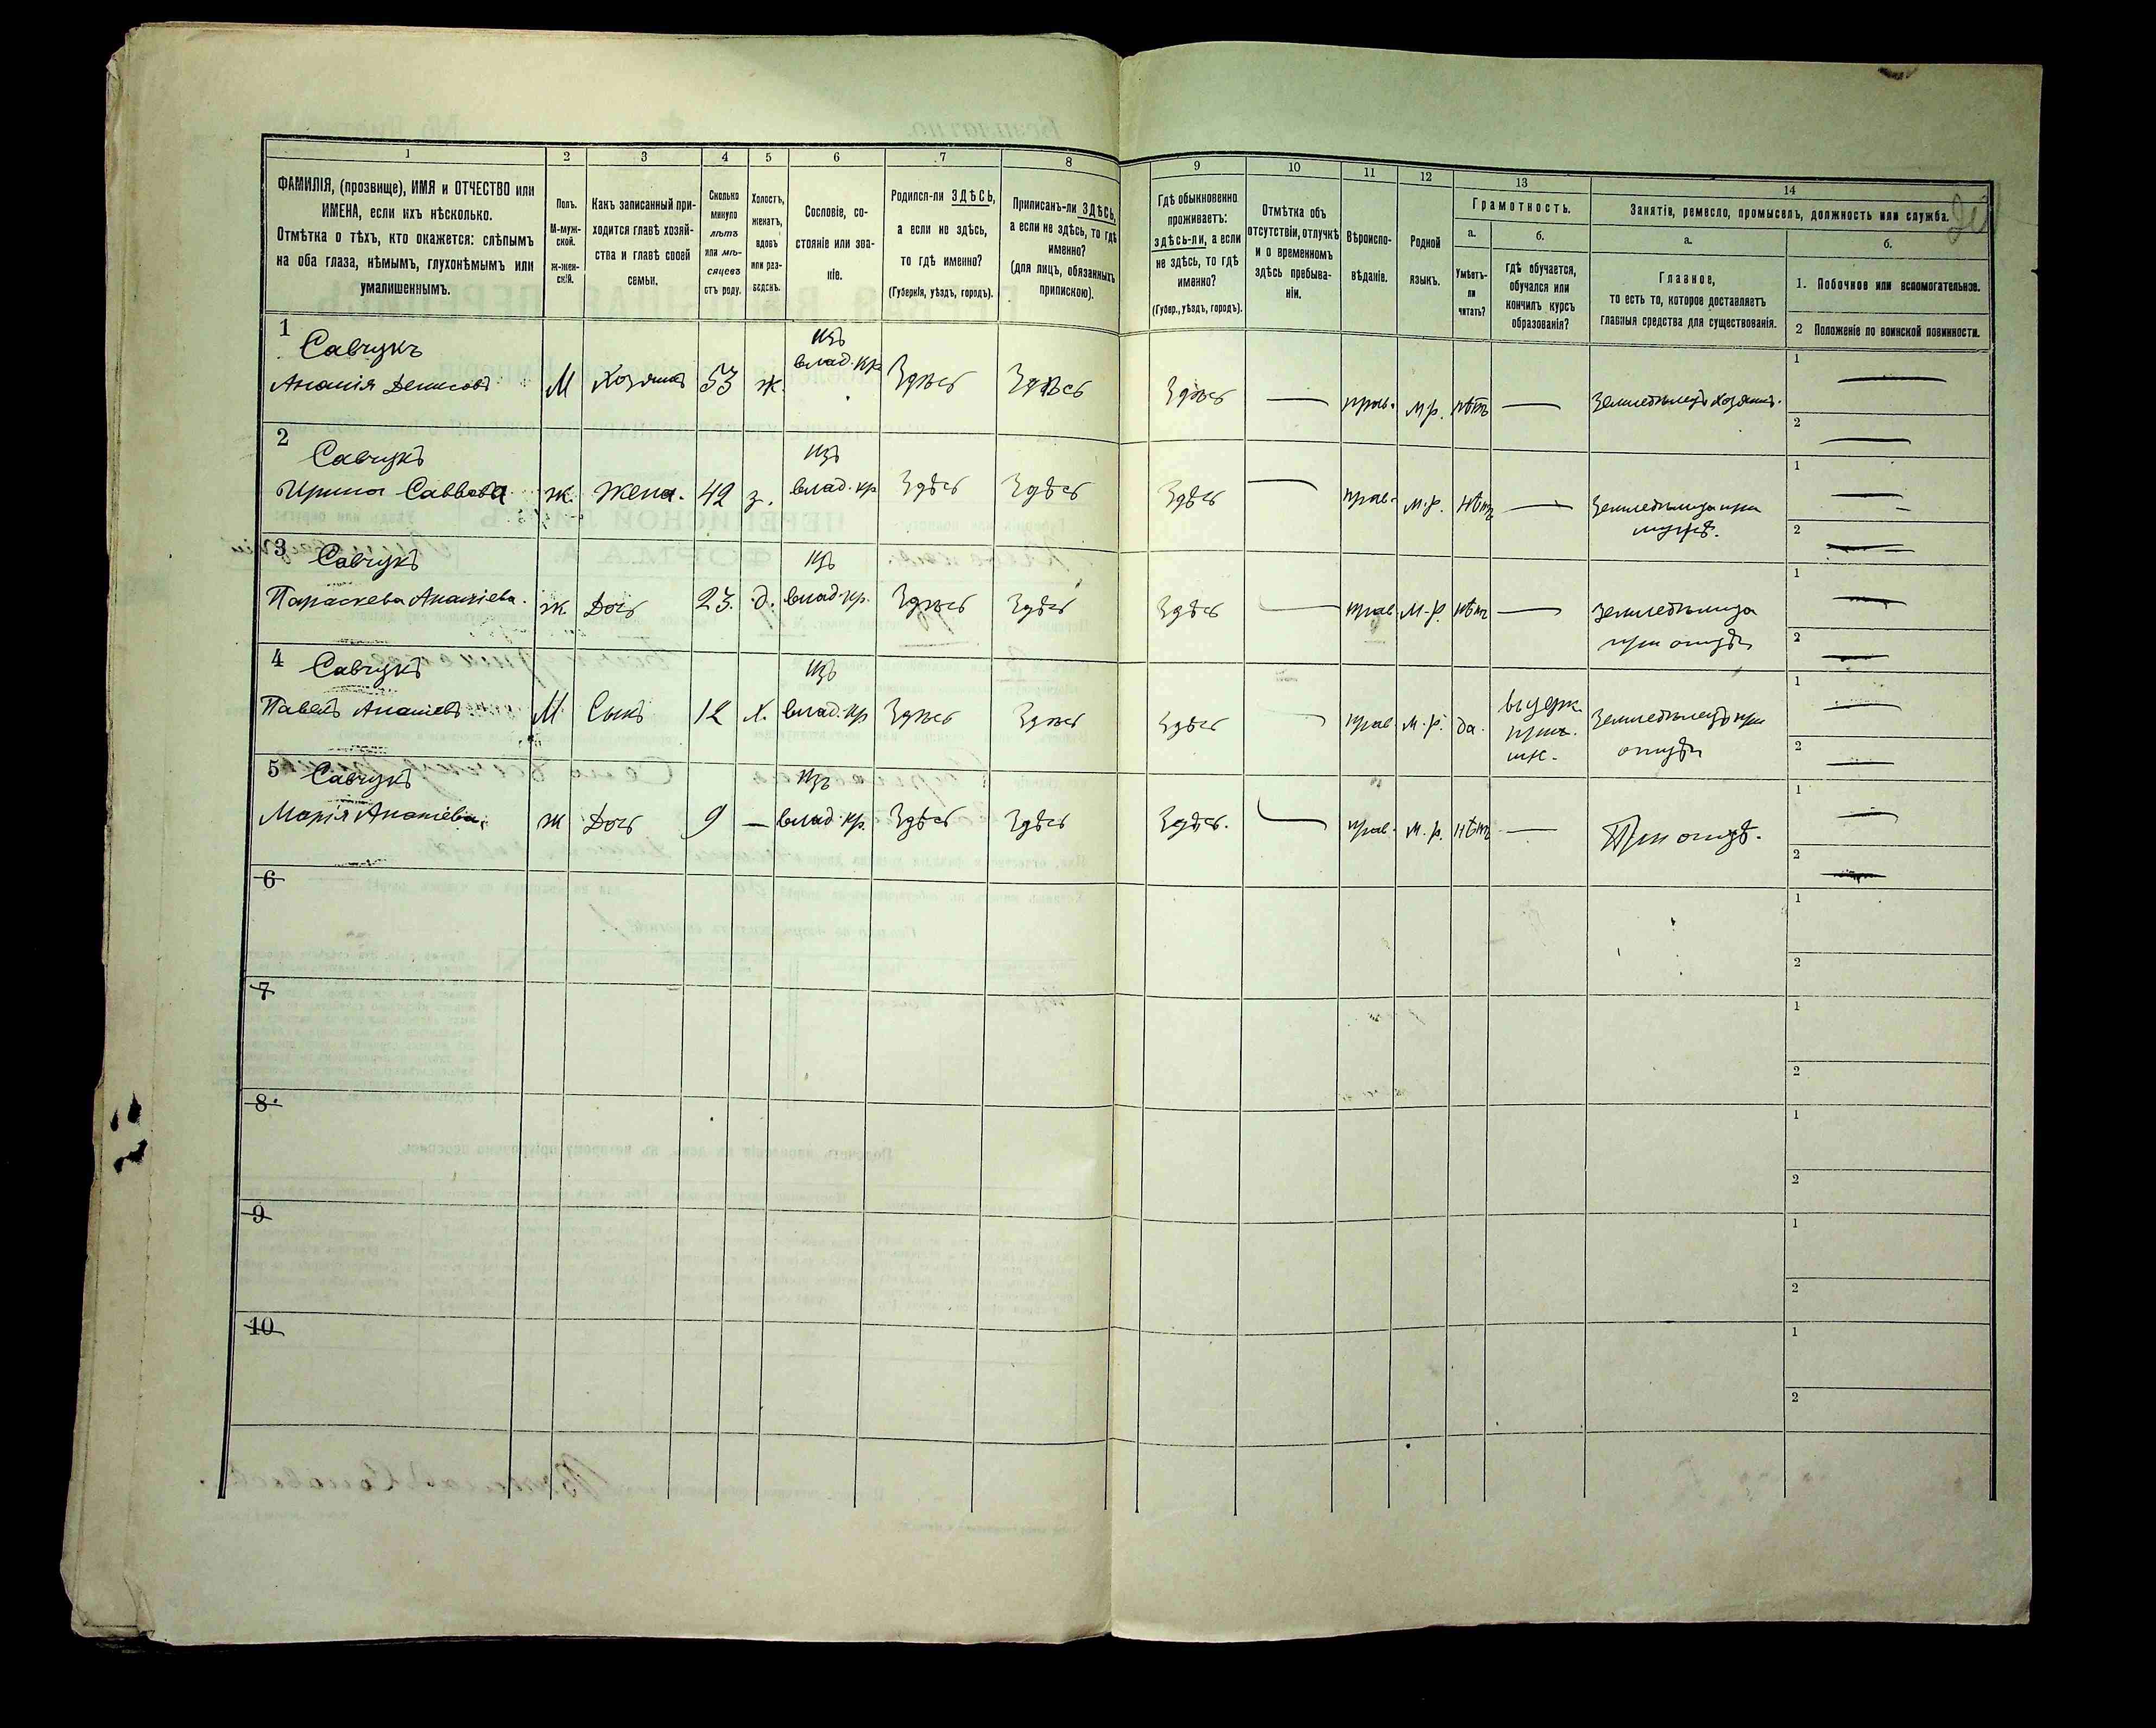 1 2 3 4 5 6 7 8 9 10 11 12 13 14
ФАМИЛІЯ, (прозвище), ИМЯ и ОТЧЕСТВО или
ИМЕНА, если ихъ нѣсколько.
Отмѣтка о тѣхъ, кто окажется: слѣпымъ
на оба глаза, нѣмымъ, глухонѣмымъ или
умалишеннымъ.
Полъ.
М-муж-
ской.
ж-жен-
скій.
Какъ записанный при-
ходится главѣ хозяй-
ства и главѣ своей
семьи.
Сколько
минуло
лѣтъ
или мѣ-
сяцевъ
отъ роду.
Холостъ,
женатъ,
вдовъ
или раз-
веденъ.
Сословіе, со-
стояніе или зва-
ніе.
Родился-ли ЗДѢСЬ,
а если не здѣсь,
то гдѣ именно?
(Губернія, уѣздъ, городъ).
Приписанъ-ли ЗДѢСЬ,
а если не здѣсь, то гдѣ
именно?
(для лицъ, обязанныхъ
припискою).
Гдѣ обыкновенно
проживаетъ:
здѣсь-ли, а если
не здѣсь, то гдѣ
именно?
(Губер., уѣздъ, городъ).
Отмѣтка объ
отсутствіи, отлучкѣ
и о временномъ
здѣсь пребыва-
ніи.
Вѣроиспо-
вѣданіе.
Родной
языкъ.
Грамотность.
а.
Умѣетъ-
ли
читать?
б.
гдѣ обучается,
обучался или
кончилъ курсъ
образованія?
Занятіе, ремесло, промыселъ, должность или служба.
а.
Главное,
то есть то, которое доставляетъ
главныя средства для существованія.
б.
1. Побочное или вспомогательное.
2 Положеніе по воинской повинности.
1 Савчукъ изъ 1
Ананія Денисовъ М Хозяинъ 53 ж. влад. кр Здѣсь Здѣсь Здѣсь — прав. м.р. нѣтъ — Земледѣлецъ хозяинъ. —
2 —
2 Савчукъ изъ 1
Ирина Саввова ж. жена. 42 з. влад. кр Здѣсь Здѣсь Здѣсь — прав. м.р. нѣтъ — Земледѣлица при —
мужѣ. 2 —
3 Савчукъ изъ 1
Параскева Ананіева. ж Дочь 23. д. влад. кр. Здѣсь Здѣсь Здѣсь — прав. м.р. нѣтъ — земледѣлица —
при отцѣ 2 —
4 Савчукъ изъ 1
Павелъ Ананіевъ. М Сынъ 12 х. влад. кр Здѣсь Здѣсь Здѣсь — прав. м.р. да. в церк. Земледѣлецъ при —
прих. отцѣ 2 —
шк.
5 Савчукъ изъ 1
Марія Ананіева. ж Дочь 9 — влад. кр. Здѣсь Здѣсь Здѣсь. — прав. м.р. нѣтъ — При отцѣ. —
2 —
6 1
2
7 1
2
8 1
2
9 1
2
10 1
2